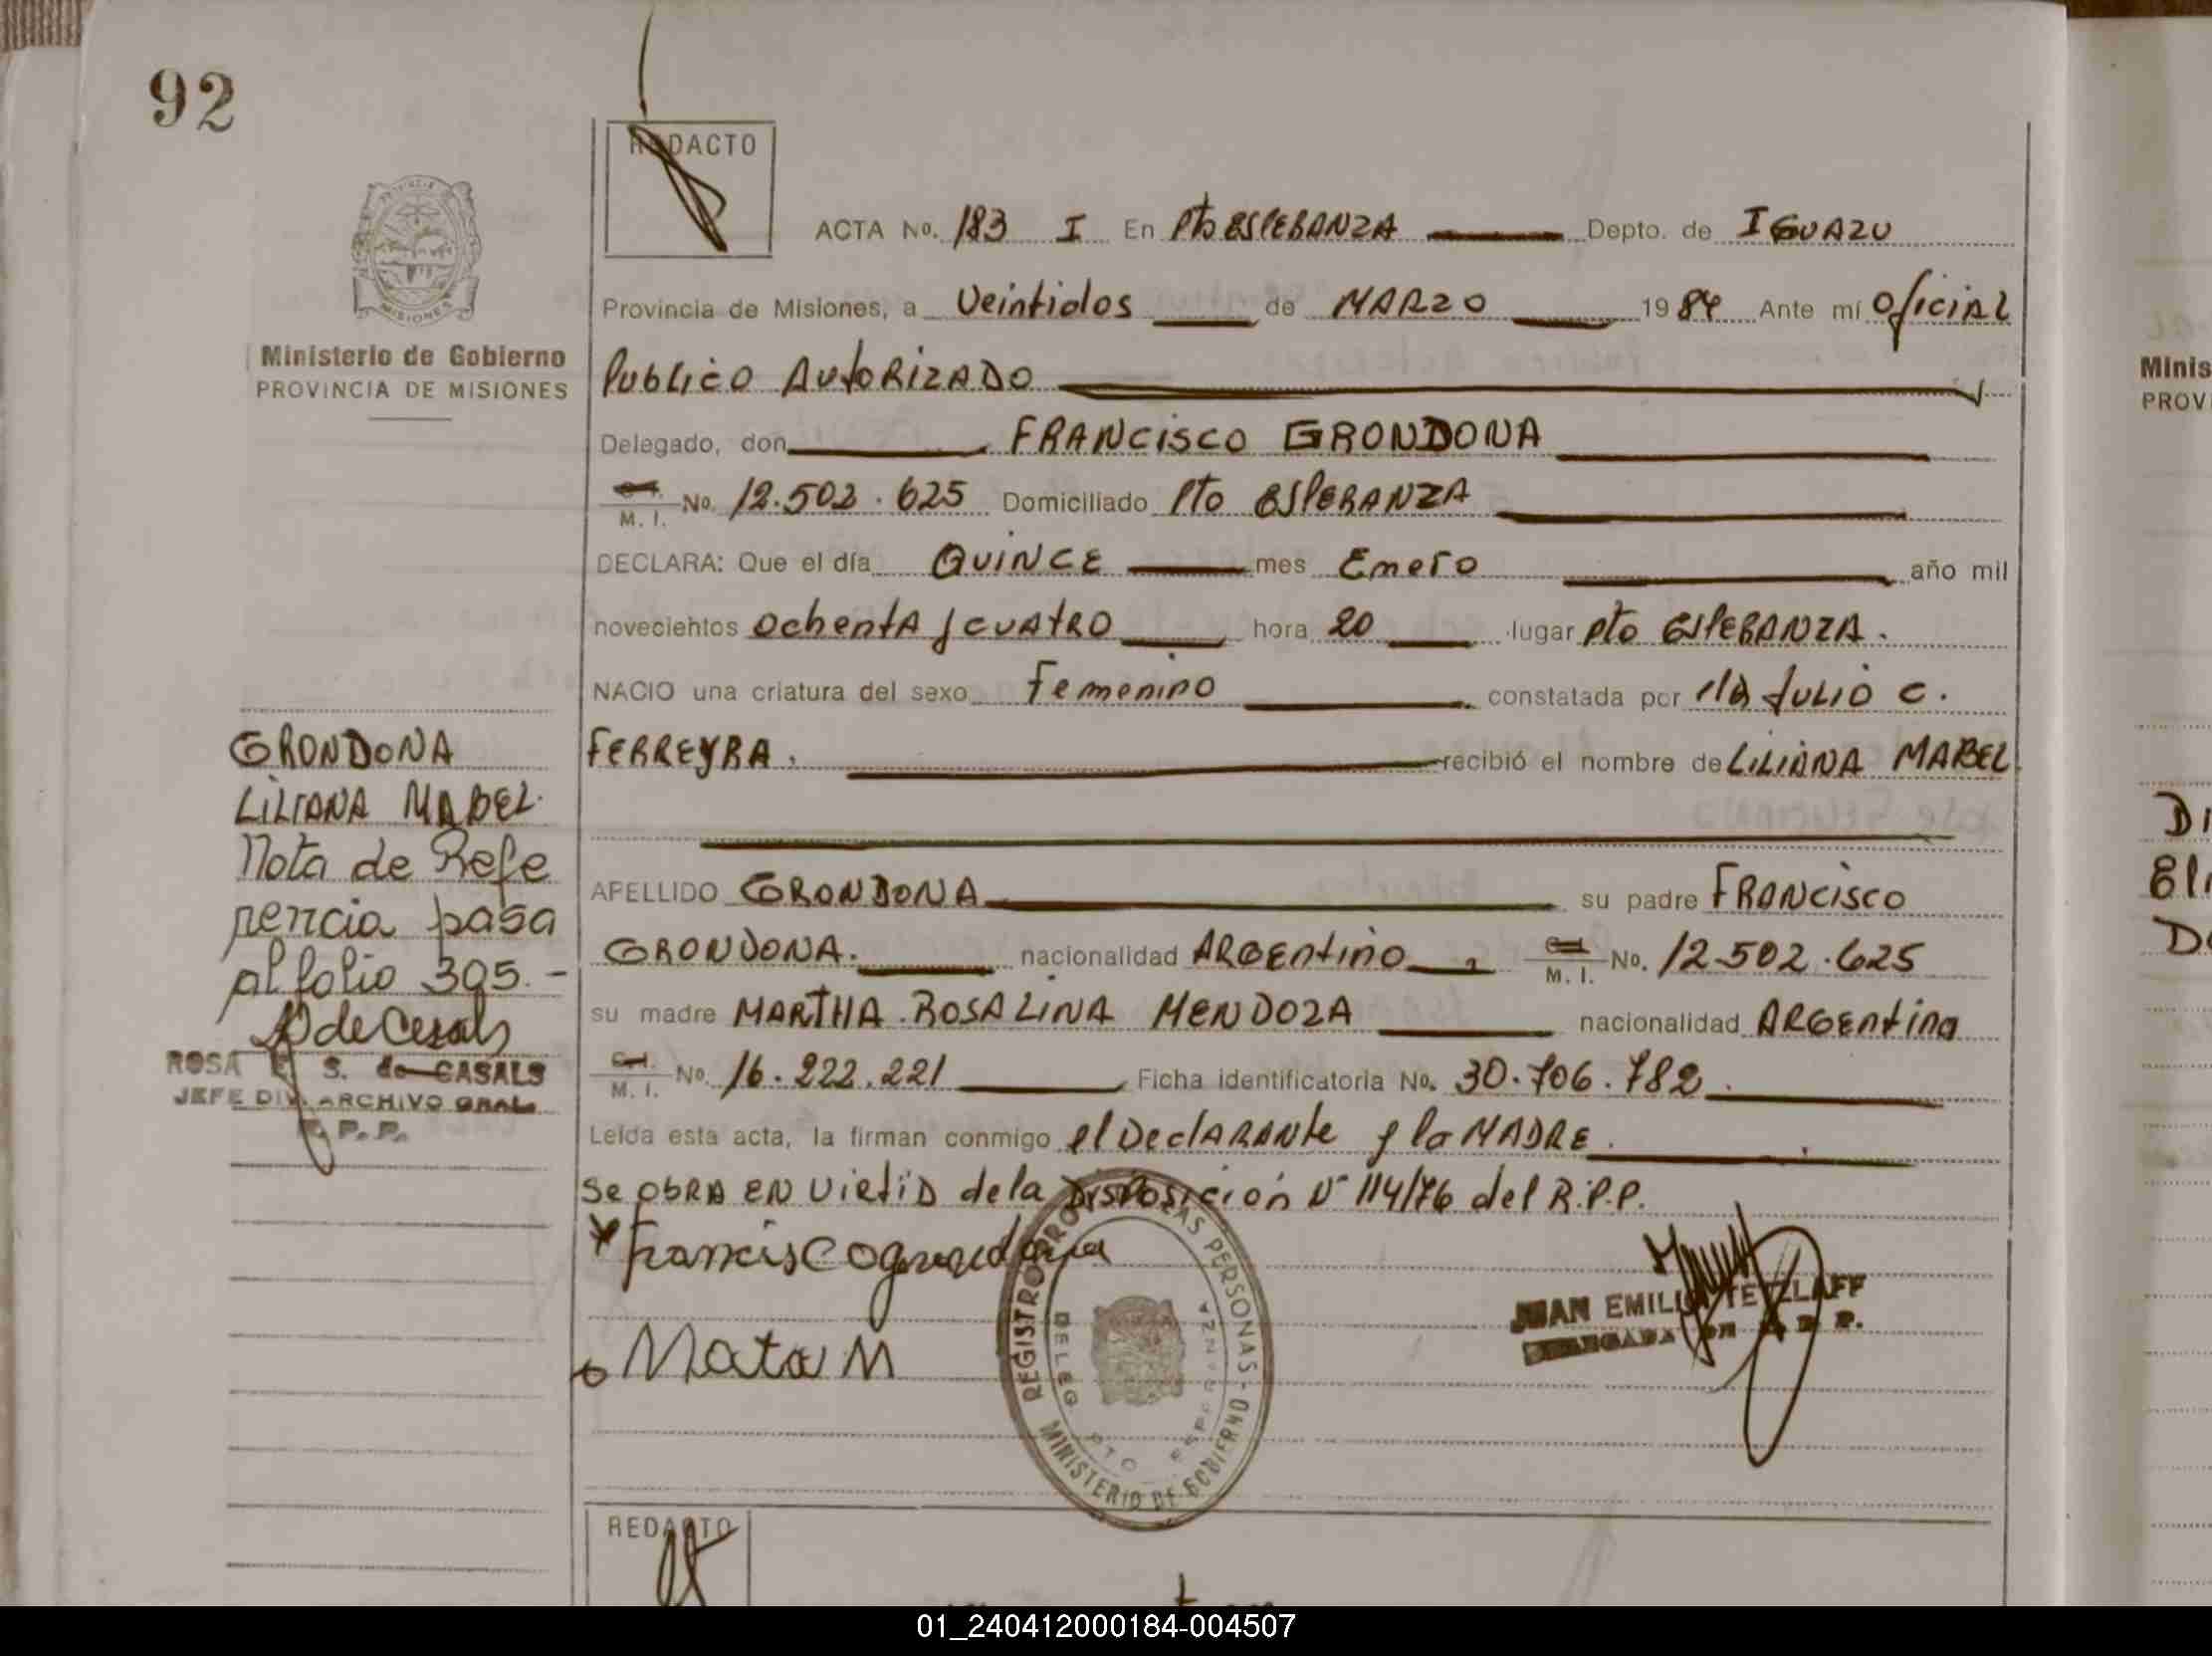 92
REDACTO
ACTA No. 183 I En Pto ESPERANZA Depto. de IGUAZU
Provincia de Misiones, a Veintidos de MARZO 1984 Ante mí Oficial
Ministerio de Gobierno
PROVINCIA DE MISIONES
Publico AutoRizADO
Delegado, don FRANCISCO GRONDONA
M. I. No. 12.502.625 Domiciliado Pto ESPERANZA
DECLARA: Que el día QUINCE mes Enero año mil
novecientos ochentA y cuAtRO hora 20 lugar pto ESPERANZA.
NACIO una criatura del sexo Femenino constatada por JULIO C.
FERREYRA. recibió el nombre de LILIANA MABEL
GRONDONA
LILIANA MABEL.
Nota de Refe
rencia pasa
al folio 395.-
ROSA E. S. de CASALS
JEFE DIV. ARCHIVO GRAL.
R. P. P.
APELLIDO GRONDONA su padre FRANCISCO
GRONDONA. nacionalidad ARGEntino M. I. No. 12.502.625
su madre MARTHA ROSALINA MENDOZA nacionalidad ARGEntina
M. I. No. 16.222.221 Ficha identificatoria No. 30.706.782.
Leída esta acta, la firman conmigo el DeclARANte y la MADRE.
Se obRA EN Virtid de la Disposición Nº 114/76 del R.P.P.
Francisco grondona
Mata M
JUAN EMILIO TETZLAFF
REGISTRO PROV. DE LAS PERSONAS - MINISTERIO DE GOBIERNO
DELEG. PTO ESPERANZA
REDACTO
Minis
PROVI
01_240412000184-004507